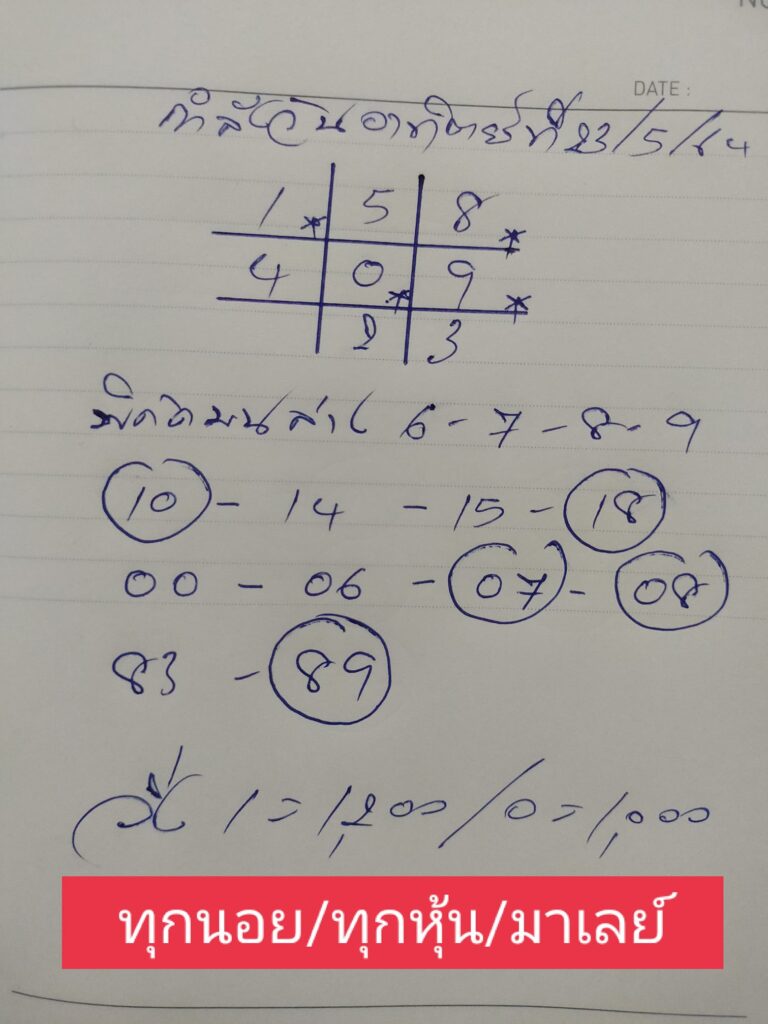 NO
DATE :
กำลังวันอาทิตย์ที่ 23/5/64
1 * 5 8 *
4 0 * 9 *
2 3
6 - 7 - 8 - 9
10 - 14 - 15 - 18
00 - 06 - 07 - 08
83 - 89
วิ่ง 1 = 1,200 / 0 = 1,000
ทุกนอย/ทุกหุ้น/มาเลย์